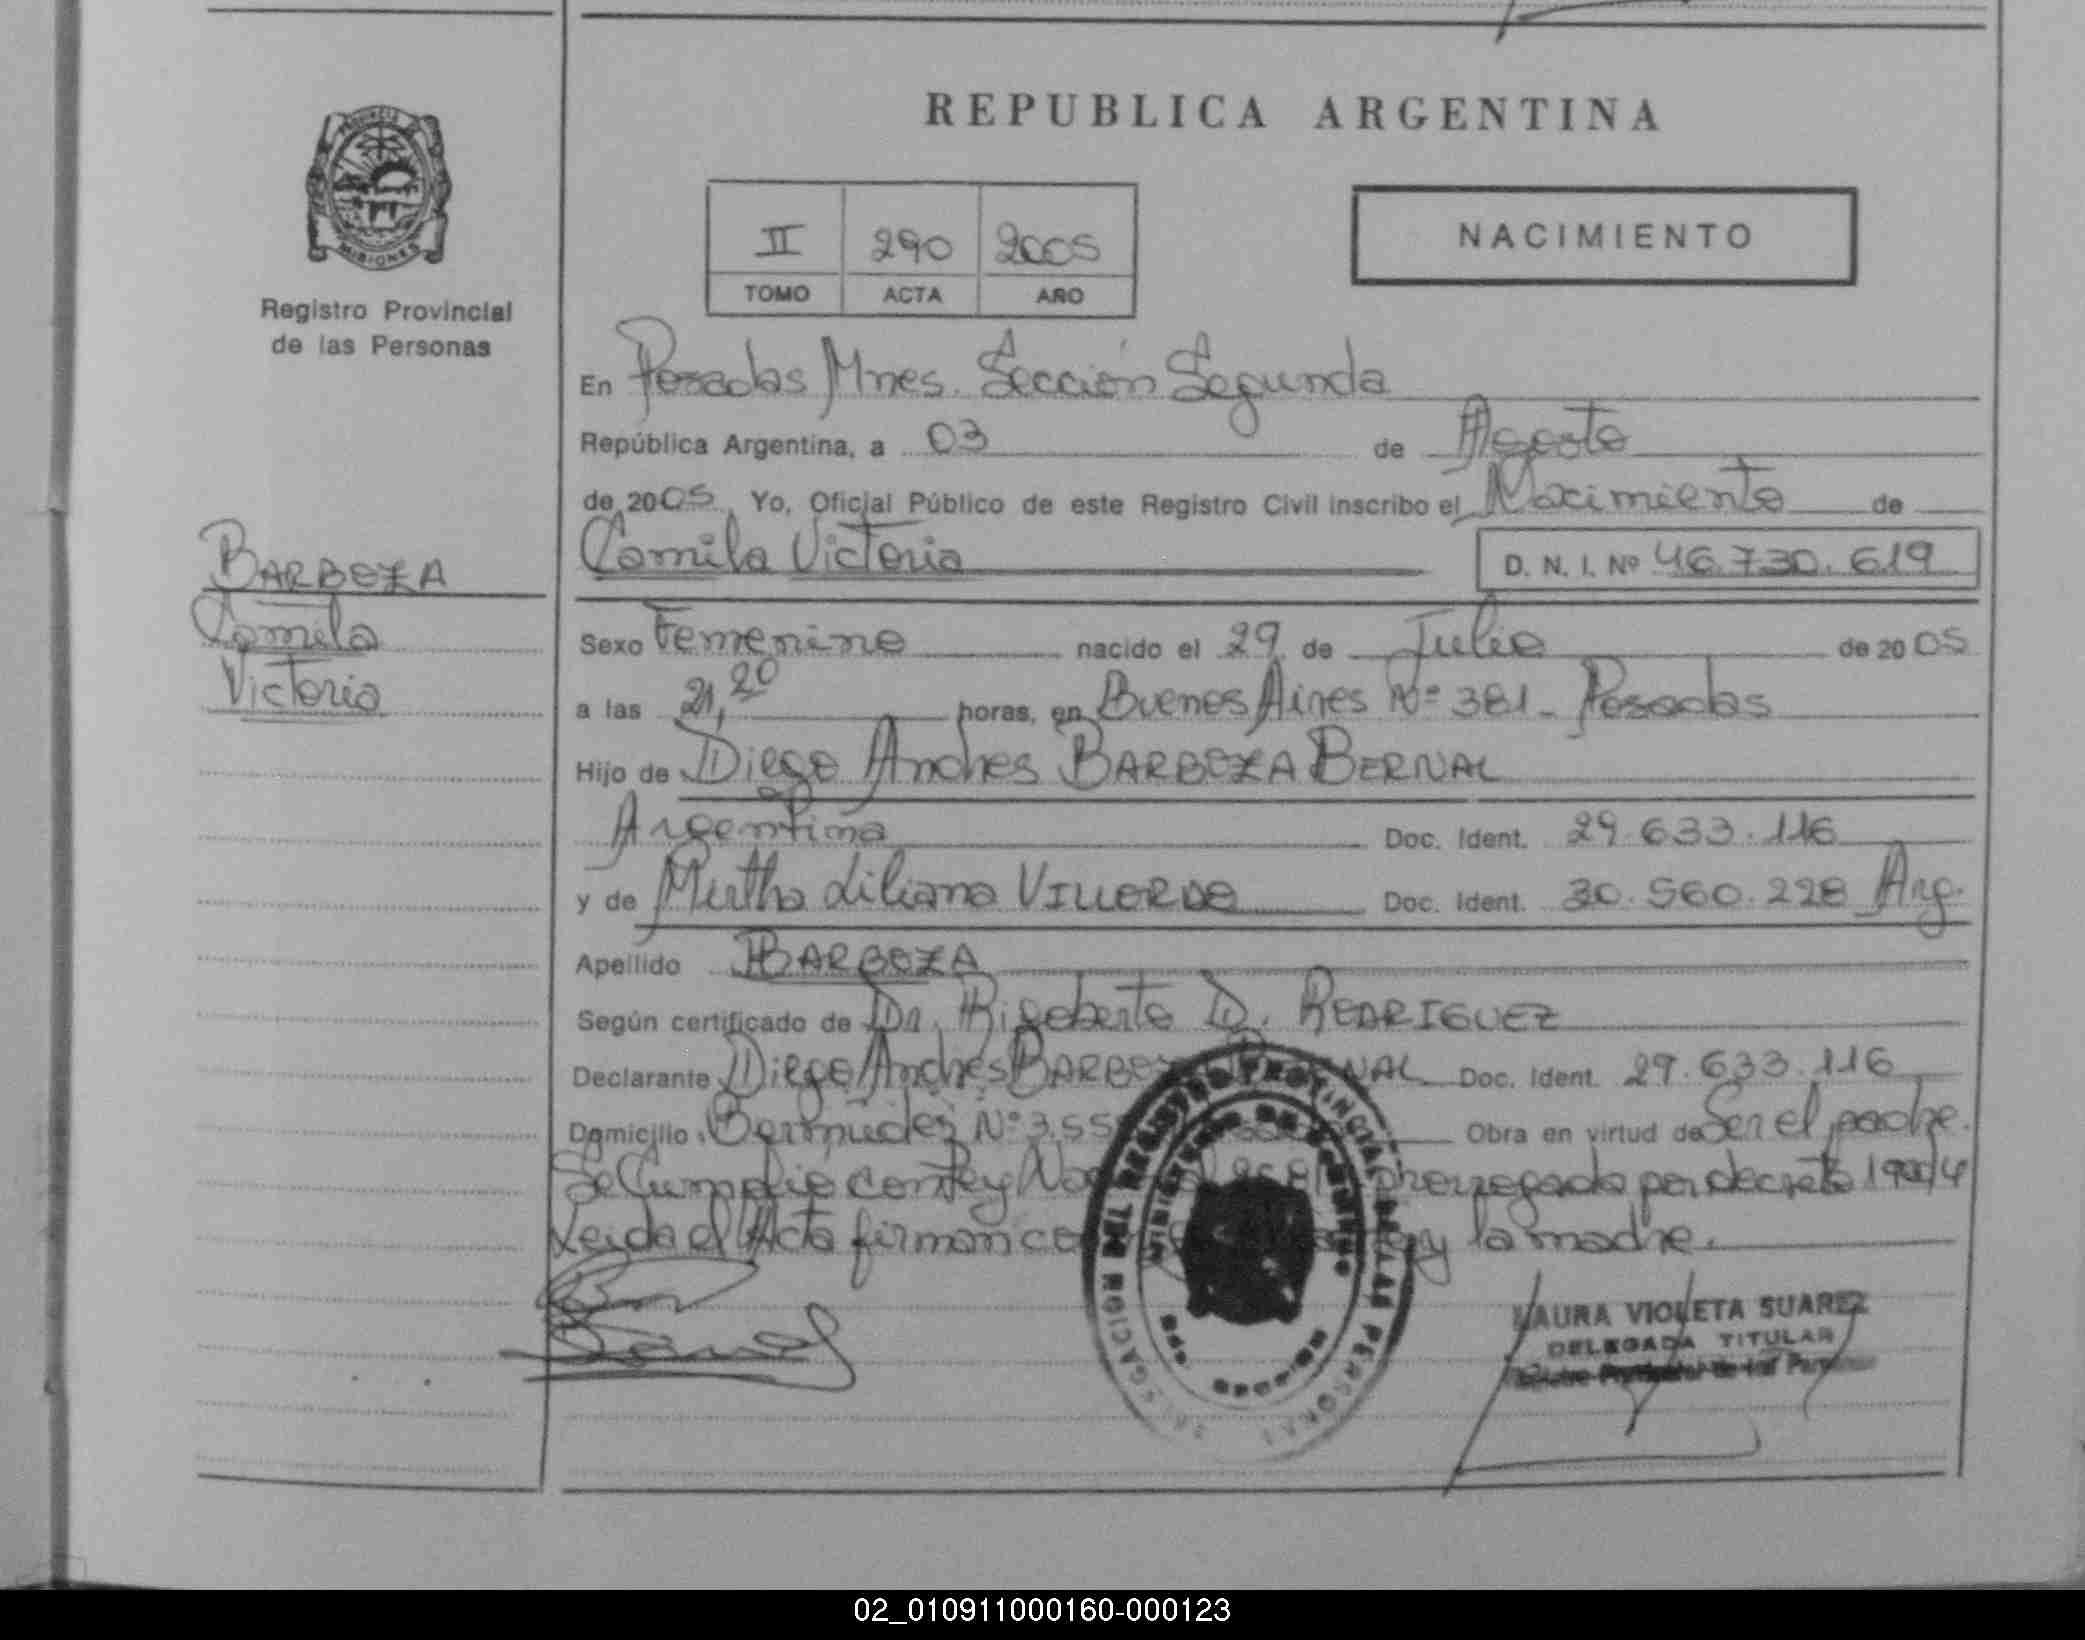 REPUBLICA ARGENTINA
PROVINCIA DE
MISIONES
Registro Provincial
de las Personas
II 290 2005
TOMO ACTA AÑO
NACIMIENTO
En Posadas Mnes. Sección Segunda
República Argentina, a 03 de Agosto
de 2005 Yo, Oficial Público de este Registro Civil inscribo el Nacimiento de
Camila Victoria D. N. I. Nº 46.730.619
BARBOZA
Camila
Victoria
Sexo Femenino nacido el 29 de Julio de 2005
a las 21,20 horas, en Buenos Aires Nº 381 - Posadas
Hijo de Diego Andres BARBOZA BERNAL
Argentina Doc. Ident. 29.633.116
y de Mirtha Liliana VILLORDO Doc. Ident. 30.560.228 Arg.
Apellido BARBOZA
Según certificado de Dr. Rigoberto D. RODRIGUEZ
Declarante Diego Andres BARBOZA BERNAL Doc. Ident. 29.633.116
Domicilio Bermudez Nº Obra en virtud de Ser el padre.
Se Cumplio con Ley prorrogada por decreto
Leida el Acta firman y la madre.
DEL REGISTRO PROVINCIAL DE LAS PERSONAS
LAURA VIOLETA SUAREZ
DELEGADA TITULAR
02_010911000160-000123